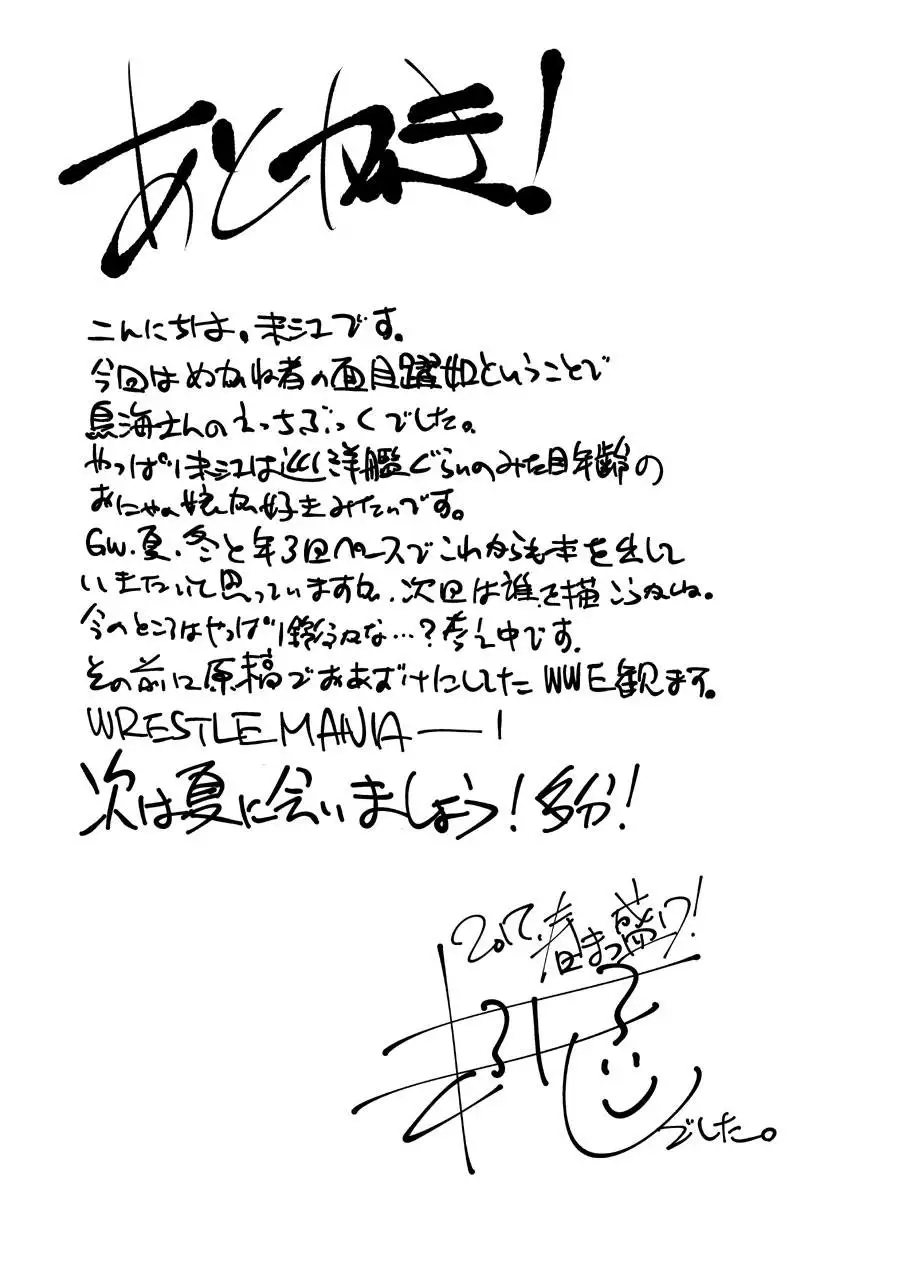 あとがき!
こんにちは。末江です。
今回はめがね者の面目躍如ということで
鳥海さんのえっちぶっくでした。
やっぱり末江は巡洋艦ぐらいのみた目年齢の
おにゃの娘が好きみたいです。
GW、夏、冬と年3回ペースでこれからも本を出して
いきたいって思っていますが、次回は誰を描こうかしね。
今のところはやっぱり鈴谷かな…?考え中です。
その前に原稿でおあずけにしてた WWE観ます。
WRESTLE MANIA——!
次は夏に会いましょう!多分!
2017.春まっ盛り!
でした。